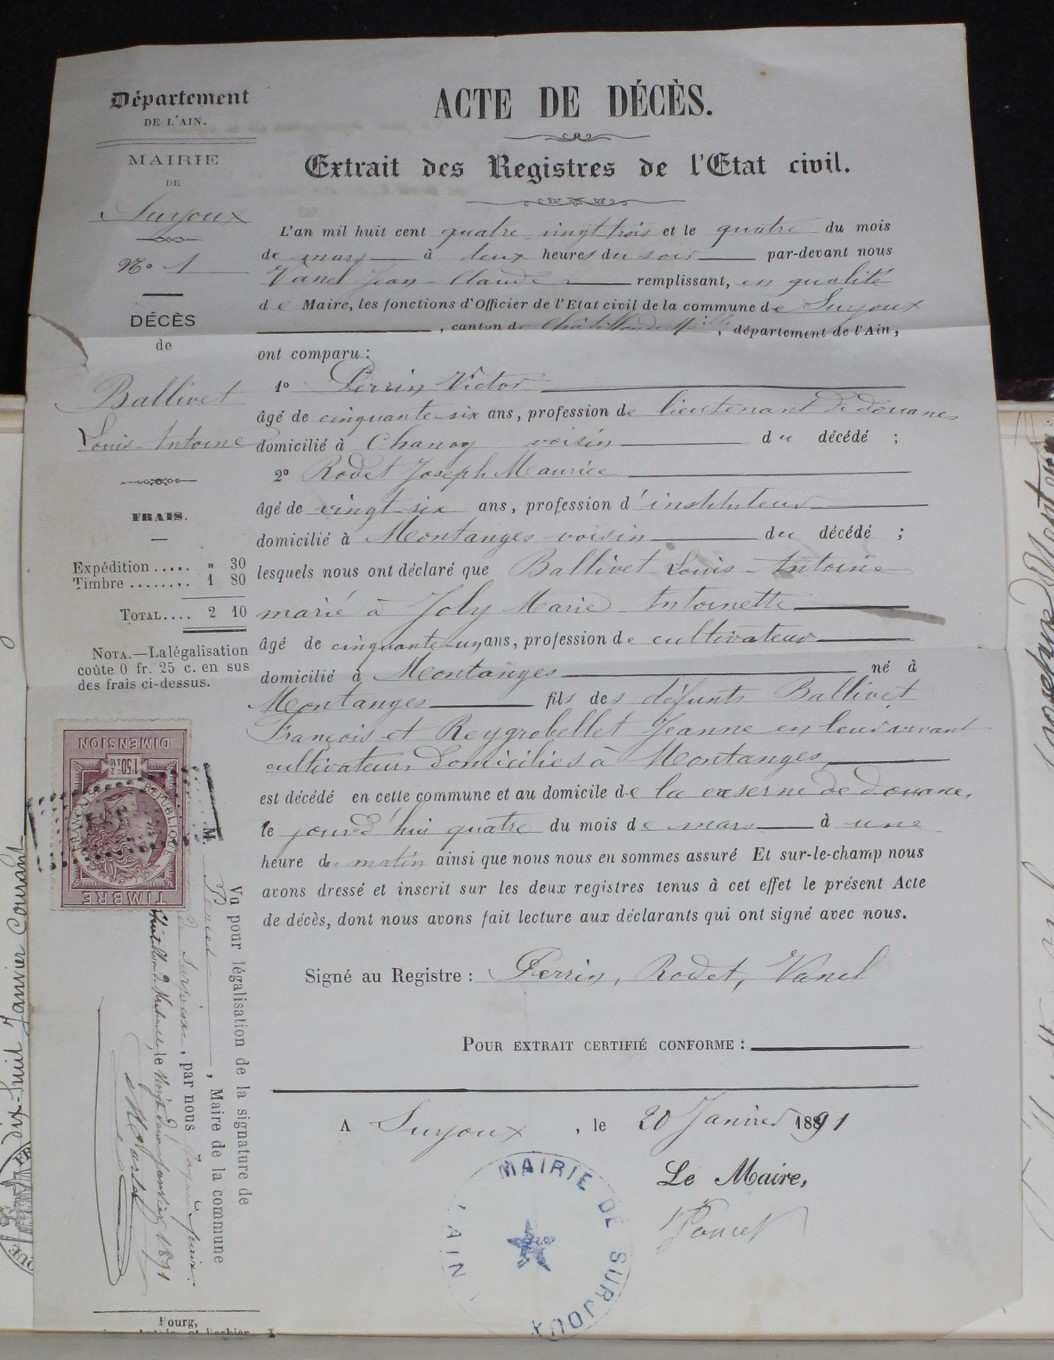 Département
DE L'AIN.
MAIRIE
DE
Surjoux
N° 1
DÉCÈS
de
Ballivet
Louis-Antoine
FRAIS.
Expédition..... " 30
Timbre........ 1 80
TOTAL.... 2 10
NOTA.—La légalisation
coûte 0 fr. 25 c. en sus
des frais ci-dessus.
ACTE DE DÉCÈS.
Extrait des Registres de l'Etat civil.
L'an mil huit cent quatre-vingt trois et le quatre du mois
de mars à deux heures du soir par-devant nous
Vanel Jean-Claude remplissant, en qualité
de Maire, les fonctions d'Officier de l'Etat civil de la commune de Surjoux
, canton de Châtillon de , département de l'Ain,
ont comparu :
1° Perrin Victor
âgé de cinquante-six ans, profession de lieutenant de douanes
domicilié à Chanay voisin du décédé ;
2° Rodet Joseph Maurice
âgé de vingt-six ans, profession d'instituteur
domicilié à Montanges voisin du décédé ;
lesquels nous ont déclaré que Ballivet Louis-Antoine
marié à Joly Marie-Antoinette
âgé de cinquante-un ans, profession de cultivateur
domicilié à Montanges né à
Montanges fils des défunts Ballivet
François et Reygrobellet Jeanne en leur vivant
cultivateurs domiciliés à Montanges
est décédé en cette commune et au domicile de la caserne de douane,
le jourd'hui quatre du mois de mars à une
heure du matin ainsi que nous nous en sommes assuré Et sur-le-champ nous
avons dressé et inscrit sur les deux registres tenus à cet effet le présent Acte
de décès, dont nous avons fait lecture aux déclarants qui ont signé avec nous.
Signé au Registre : Perrin, Rodet, Vanel
POUR EXTRAIT CERTIFIÉ CONFORME :
A Surjoux, le 20 Janvier 1891
Le Maire,
Poncet
MAIRIE DE SURJOUX
AIN
DIMENSION
1f50c
RÉPUBLIQUE FRANÇAISE
TIMBRE
Vu pour légalisation de la signature de
M. Poncet, Maire de la commune
de Surjoux, par nous
le vingt deux janvier 1891
Bourg,
dix-huit Janvier Courant